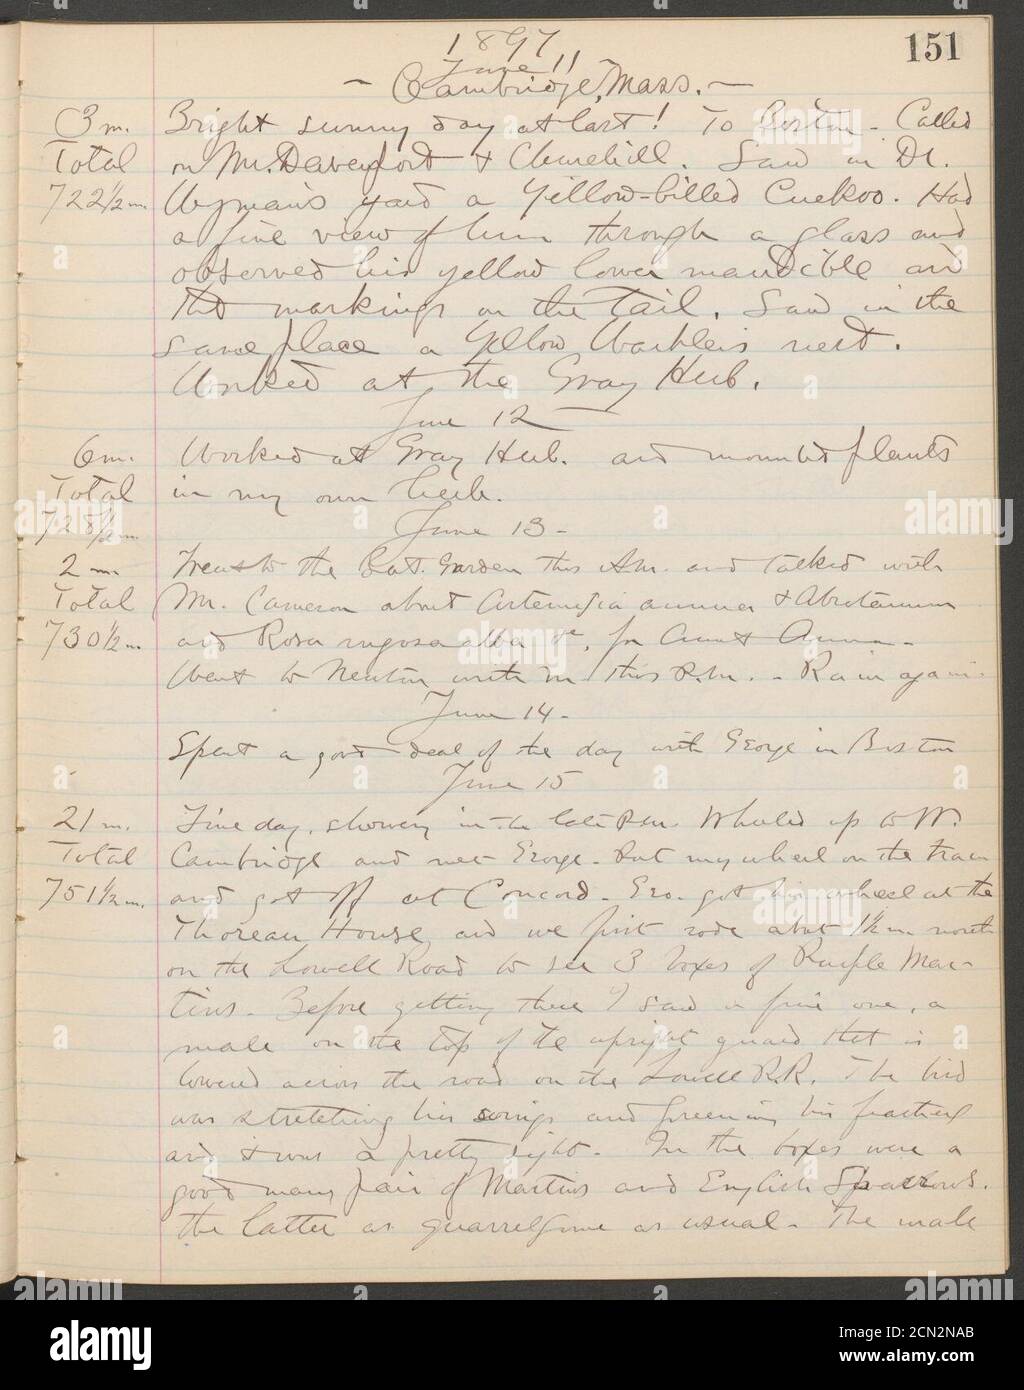 151
1897
June 11
- Cambridge, Mass. -
3 m. Bright sunny day at last! To Boston - Called
Total on Mr. Davenport & Churchill. Saw in Dr.
722½ m. Wyman's yard a Yellow-billed Cuckoo. Had
a fine view of him through a glass and
observed his yellow lower mandible and
the markings on the tail. Saw in the
same place a Yellow Warbler's nest.
Worked at the Gray Herb.
June 12
6 m. Worked at Gray Herb. and mounted plants
Total in my own herb.
728½ m. June 13 -
2 m. Went to the Bot. Garden this A.m. and talked with
Total Mr. Cameron about Artemisia annua & Abrotanum
730½ m. and Rosa rugosa alba &c, for Aunt Anna -
Went to Newton with M this P.m. - Rain again -
June 14 -
Spent a good deal of the day with George in Boston
June 15
21 m. Fine day, showery in the late P.m. Wheeled up to W.
Total Cambridge and met George - Put my wheel on the train
751½ m. and got off at Concord - Geo. got his wheel at the
Thoreau House and we first rode about 1½ m north
on the Lowell Road to see 3 boxes of Purple Mar-
tins - Before getting there I saw a fine one, a
male on the top of the upright guard that is
lowered across the road on the Lowell R.R. The bird
was stretching his wings and preening his feathers
and it was a pretty sight - In the boxes were a
good many pair of Martins and English Sparrows.
the latter as quarrelsome as usual - The male
alamy
2CN2NAB
www.alamy.com